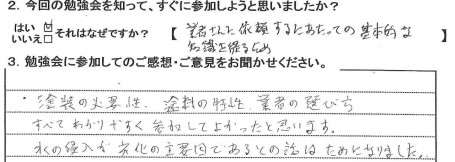 2. 今回の勉強会を知って、すぐに参加しようと思いましたか?
はい ☑
いいえ□ それはなぜですか? 【 業者さんに依頼するにあたっての基本的な
知識を得るため
3. 勉強会に参加してのご感想・ご意見をお聞かせください。
・塗装の必要性、塗料の特性、業者の選び方
すべてわかりやすく参加してよかったと思います。
水の侵入が劣化の主要因であるとの話はためになりました。